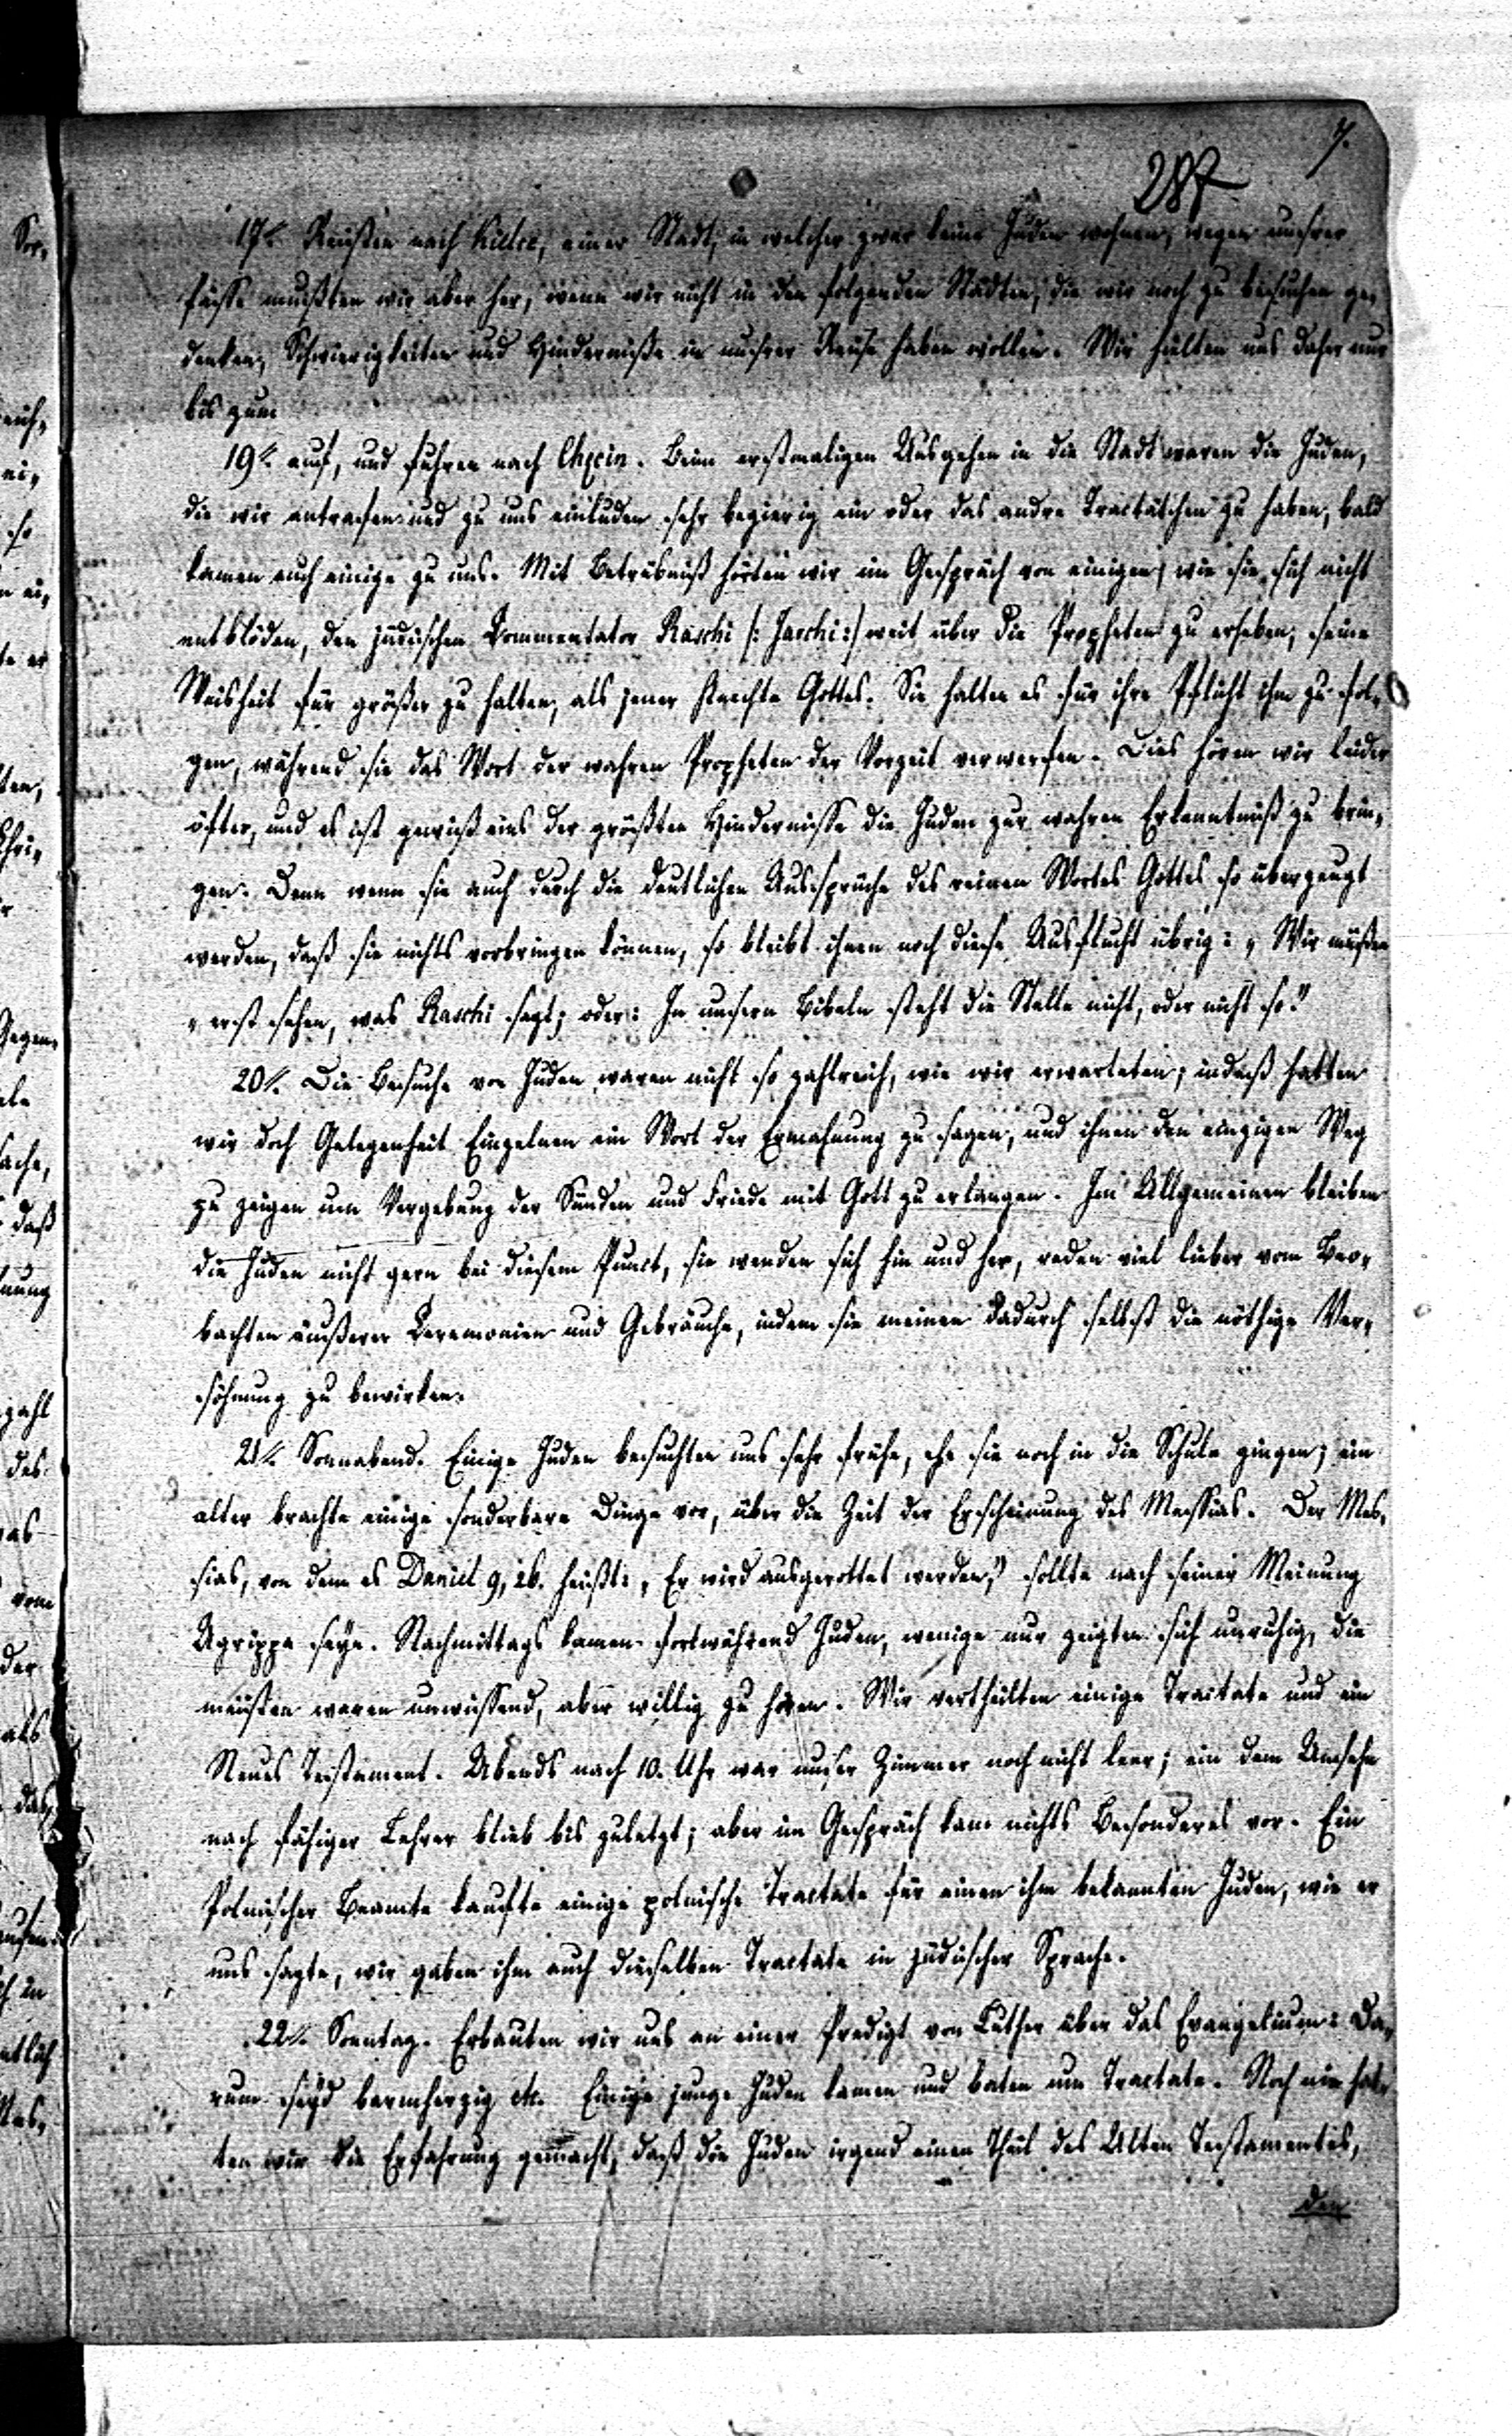 7.
287
17t. Reisten nach Kielce, einer Stadt, in welcher zwar keine Juden wohnen, wegen unsrer
Pässe mußten wir aber her, wenn wir nicht in den folgenden Städten, die wir noch zu besuchen ge„
denken, Schwierigkeiten und Hinderniße in unsrer Reise haben wollen. Wir hielten uns daher nur
bis zum
19t. auf, und fuhren nach Chęcin. Beim erstmaligen Ausgehen in die Stadt waren die Juden,
die wir antrafen und zu uns einluden sehr begierig ein oder das andre Tractätchen zu haben, bald
kamen auch einige zu uns. Mit Betrübniß hörten wir im Gespräch von einigen, wie sie sich nicht
entblöden, den jüdischen Commentator Raschi /: Jarchi :/ weit über die Propheten zu erheben, seine
Weisheit für größer zu halten, als jener Knechte Gottes. Sie halten es für ihre Pflicht ihm zu fol„
gen, während sie das Wort der wahren Propheten der Vorzeit verwerfen. Dies hören wir leider
öfter, und es ist gewiß eins der größten Hindernisse die Juden zur wahren Erkenntniß zu brin„
gen. Denn wenn sie auch durch die deutlichen Aussprüche des reinen Wortes Gottes so überzeugt
werden, daß sie nichts vorbringen können, so bleibt ihnen noch diese Ausflucht übrig: „Wir müßen
„erst sehen, was Raschi sagt; oder: In unsern Bibeln steht die Stelle nicht, oder nicht so."
20t. Die Besuche von Juden waren nicht so zahlreich, wie wir erwarteten; indeß hatten
wir doch Gelegenheit Einzelnen ein Wort der Ermahnung zu sagen, und ihnen den einzigen Weg
zu zeigen um Vergebung der Sünden und Friede mit Gott zu erlangen. Im Allgemeinen bleiben
die Juden nicht gern bei diesem Punct, sie wenden sich hin und her, reden viel lieber vom Beo„
bachten äußerer Ceremonien und Gebräuche, indem sie meinen dadurch selbst die nöthige Ver„
söhnung zu bewirken.
21t. Sonnabend. Einige Juden besuchten uns sehr frühe, ehe sie noch in die Schule gingen; ein
alter brachte einige sonderbare Dinge vor, über die Zeit der Erscheinung des Messias. Der Mes„
sias, von dem es Daniel 9, 26. heißt: „Er wird ausgerottet werden," sollte nach seiner Meinung
Agrippa seyn. Nachmittags kamen fortwährend Juden, wenige nur zeigten sich unruhig, die
meisten waren unwissend, aber willig zu hören. Wir vertheilten einige Tractate und ein
Neues Testament. Abends nach 10. Uhr war unser Zimmer noch nicht leer; ein dem Ansehn
nach fähiger Lehrer blieb bis zuletzt; aber im Gespräch kam nichts Besonderes vor. Ein
Polnischer Beamte kaufte einige polnische Tractate für einen ihm bekannten Juden, wie er
uns sagte, wir gaben ihm auch dieselben Tractate in jüdischer Sprache.
22t. Sonntag. Erbauten wir uns an einer Predigt von Luther über das Evangelium: Da„
rum seyd barmherzig etc. Einige junge Juden kamen und baten um Tractate. Noch nie hat„
ten wir die Erfahrung gemacht, daß die Juden irgend einen Theil des Alten Testamentes,
den